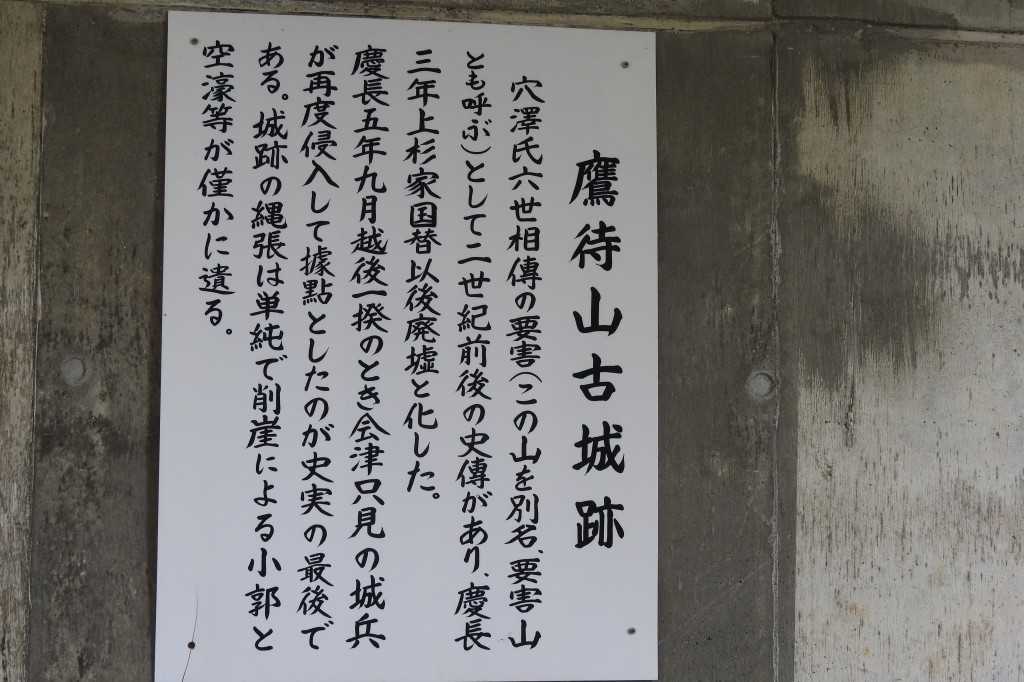 鷹待山古城跡
穴澤氏六世相傳の要害(この山を別名、要害山
とも呼ぶ)として二世紀前後の史傳があり、慶長
三年上杉家国替以後廃墟と化した。
慶長五年九月越後一揆のとき会津只見の城兵
が再度侵入して據點としたのが史実の最後で
ある。城跡の縄張は単純で削崖による小郭と
空濠等が僅かに遺る。